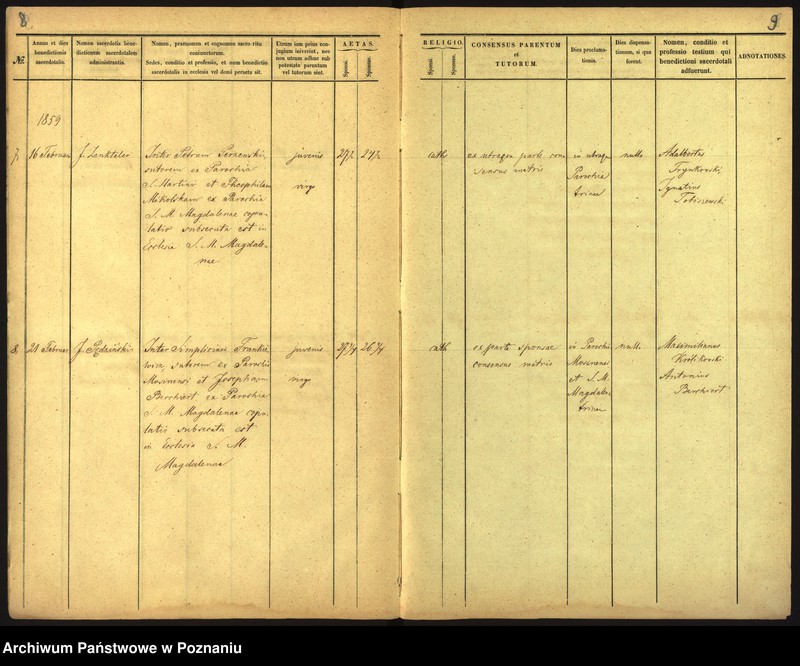 8
9
№
Annus et dies benedictionis sacerdotalis.
Nomen sacerdotis benedictionem sacerdotalem administrantis.
Nomen, praenomen et cognomen sacro ritu coniunctorum.
Sedes, conditio et professio, et num benedictio sacerdotalis in ecclesia vel domi peracta sit.
Utrum iam prius conjugium inierint, nec non utrum adhuc sub potestate parentum vel tutorum sint.
AETAS.
Sponsi.
Sponsae.
RELIGIO.
Sponsi.
Sponsae.
CONSENSUS PARENTUM
et
TUTORUM.
Dies proclamationis.
Dies dispensationum, si quae forent.
Nomen, conditio et professio testium qui benedictioni sacerdotali adfuerunt.
ADNOTATIONES.
1859
7.
16 Februar
J. Zenkteler
Inter Petrum
sutorem ex Parochia
S. Martini et Theophilam
ex Parochia
S. M. Magdalenae copu-
latio subsecuta est in
Ecclesia S. M. Magdale-
nae
juvenis
virgo
cath
ex utraque parte con
sensus matris
in utraque
Parochia
trinae
nulla
Adalbertus
Frynkowski,
Ignatius
8.
28 Februar
J.
Inter Simplicium
sutorem ex Parochia
Mosinensi et Josepham
Berchiert ex Parochia
S. M. Magdalenae copu-
latio subsecuta est
in Ecclesia S. M.
Magdalenae
juvenis
virgo
cath
ex parte sponsae
consensus matris
in Parochia
Mosinensi
et S. M.
Magdalen
trinae
nulla
Maximilianus
Królikowski
Antonius
Berchiert
Archiwum Państwowe w Poznaniu